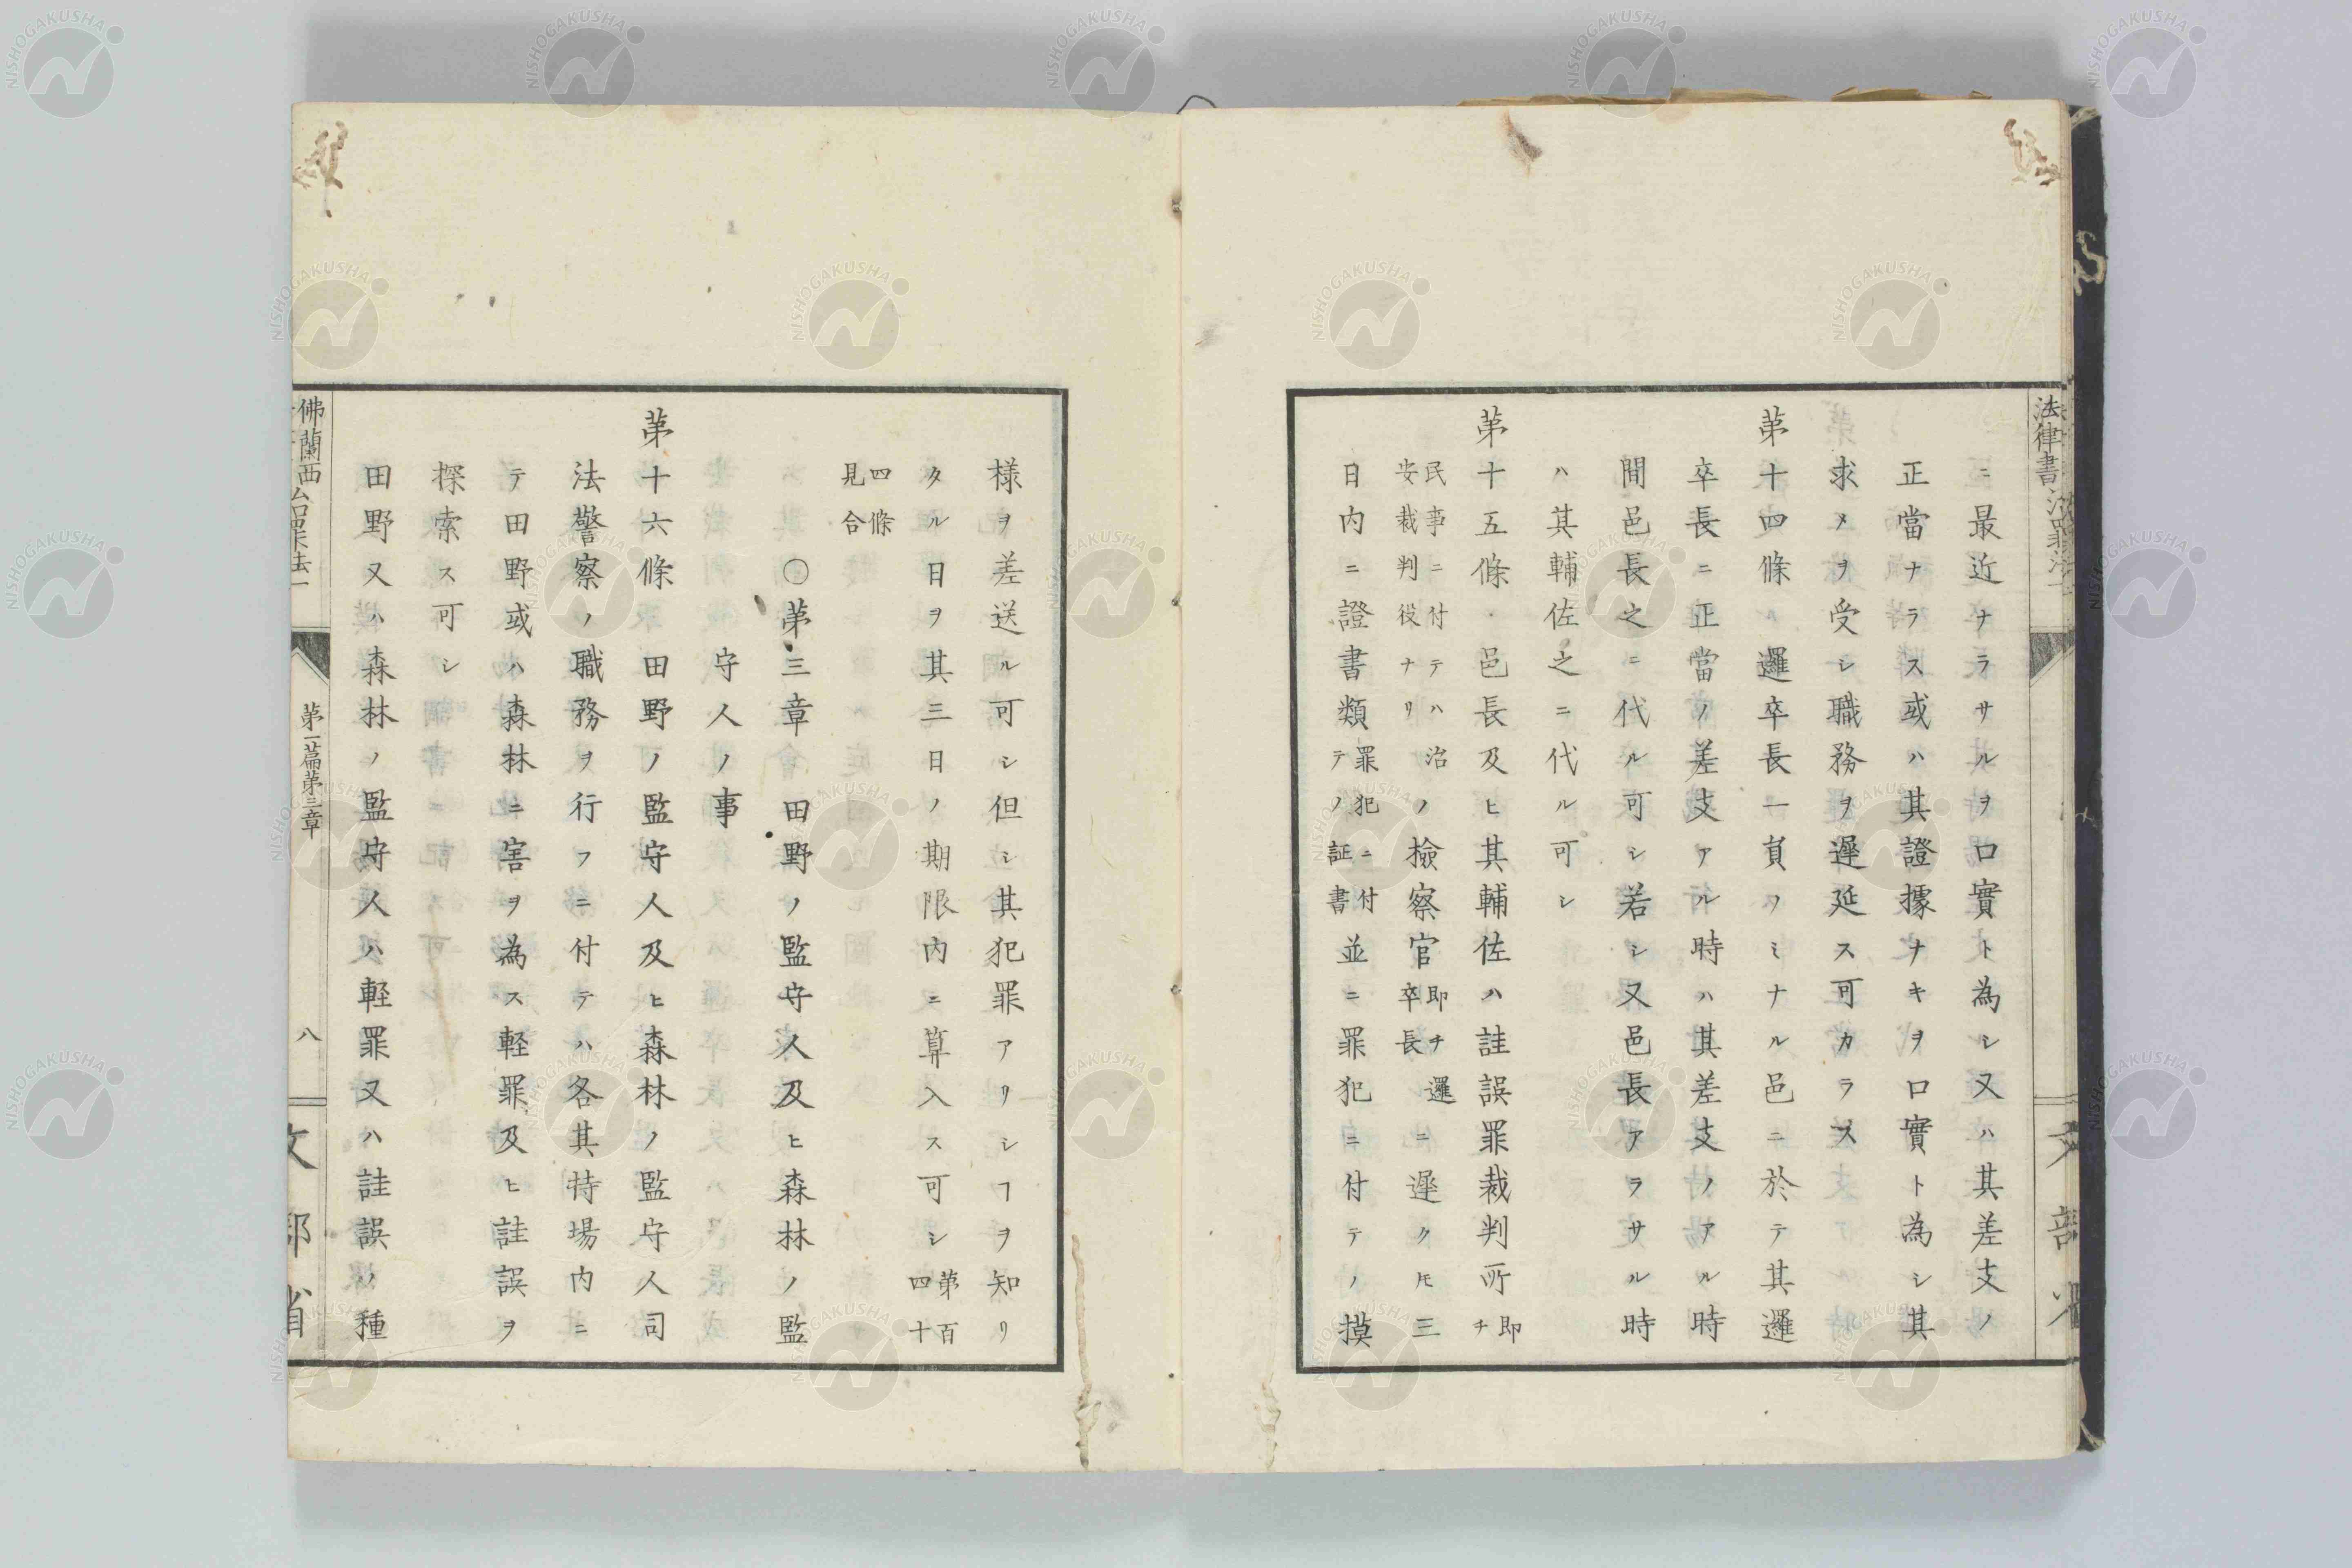 法律書
ニ最近ナラサルヲ口實ト為シ又ハ其差支ノ
正當ナラス或ハ其證據ナキヲ口實ト為シ其
求メヲ受シ職務ヲ遲延ス可カラス
第十四條 邏卒長一員ノミナル邑ニ於テ其邏
卒長ニ正當ノ差支アル時ハ其差支ノアル時
間邑長之ニ代ル可シ若シ又邑長アラサル時
ハ其輔佐之ニ代ル可シ
第十五條 邑長及ヒ其輔佐ハ註誤罪裁判所即チ
民事ニ付テハ治安裁判役ナリノ撿察官即チ邏卒長ニ遲クㇳモ三
日内ニ證書類罪犯ニ付テノ証書並ニ罪犯ニ付テノ摸
様ヲ差送ル可シ但シ其犯罪アリシヿヲ知リ
タル日ヲ其三日ノ期限内ニ算入ス可シ第百四十
四條見合
〇第三章 田野ノ監守人及ヒ森林ノ監
守人ノ事
第十六條 田野ノ監守人及ヒ森林ノ監守人司
法警察ノ職務ヲ行フニ付テハ各其持場内ニ
テ田野或ハ森林ニ害ヲ為ス軽罪及ヒ註誤ヲ
探索ス可シ
田野又ハ森林ノ監守人ハ軽罪又ハ註誤ノ種
佛蘭西
第一篇第三章
八
文部省
NISHOGAKUSHA